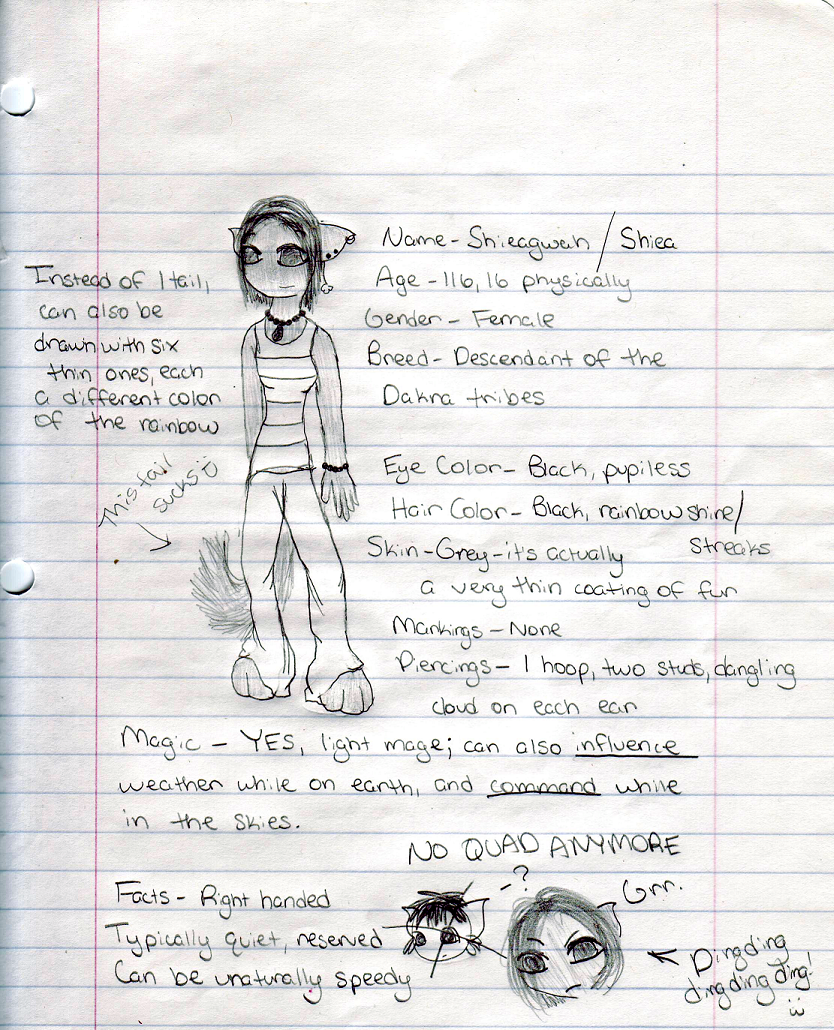 Name - Shieagwah / Shiea
Age - 116, 16 physically
Gender - Female
Breed - Descendant of the
Dakra tribes
Instead of 1 tail,
can also be
drawn with six
thin ones, each
a different color
of the rainbow
This tail
sucks
Eye Color - Black, pupiless
Hair Color - Black, rainbow shine/
streaks
Skin - Grey - it's actually
a very thin coating of fur
Markings - None
Piercings - 1 hoop, two studs, dangling
cloud on each ear
Magic - YES, light mage; can also influence
weather while on earth, and command while
in the skies.
NO QUAD ANYMORE
Facts - Right handed
Typically quiet, reserved
Can be unaturally speedy
-?
Grr.
Ding ding
ding ding ding!